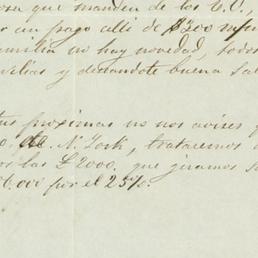 que manden de los E.U.,
un pago alli de $300 m/
familia no hay novedad, todos
y deseandote buena
tus proximas no nos avises
de N. York, trataremos
las £2000. que giramos
6.000 por el 25%.